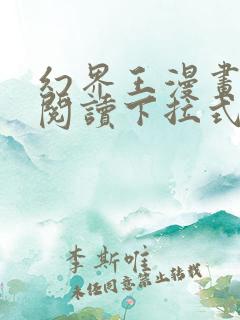 幻界王漫畫
閱讀下拉式
李斯唯
未經同意禁止轉載